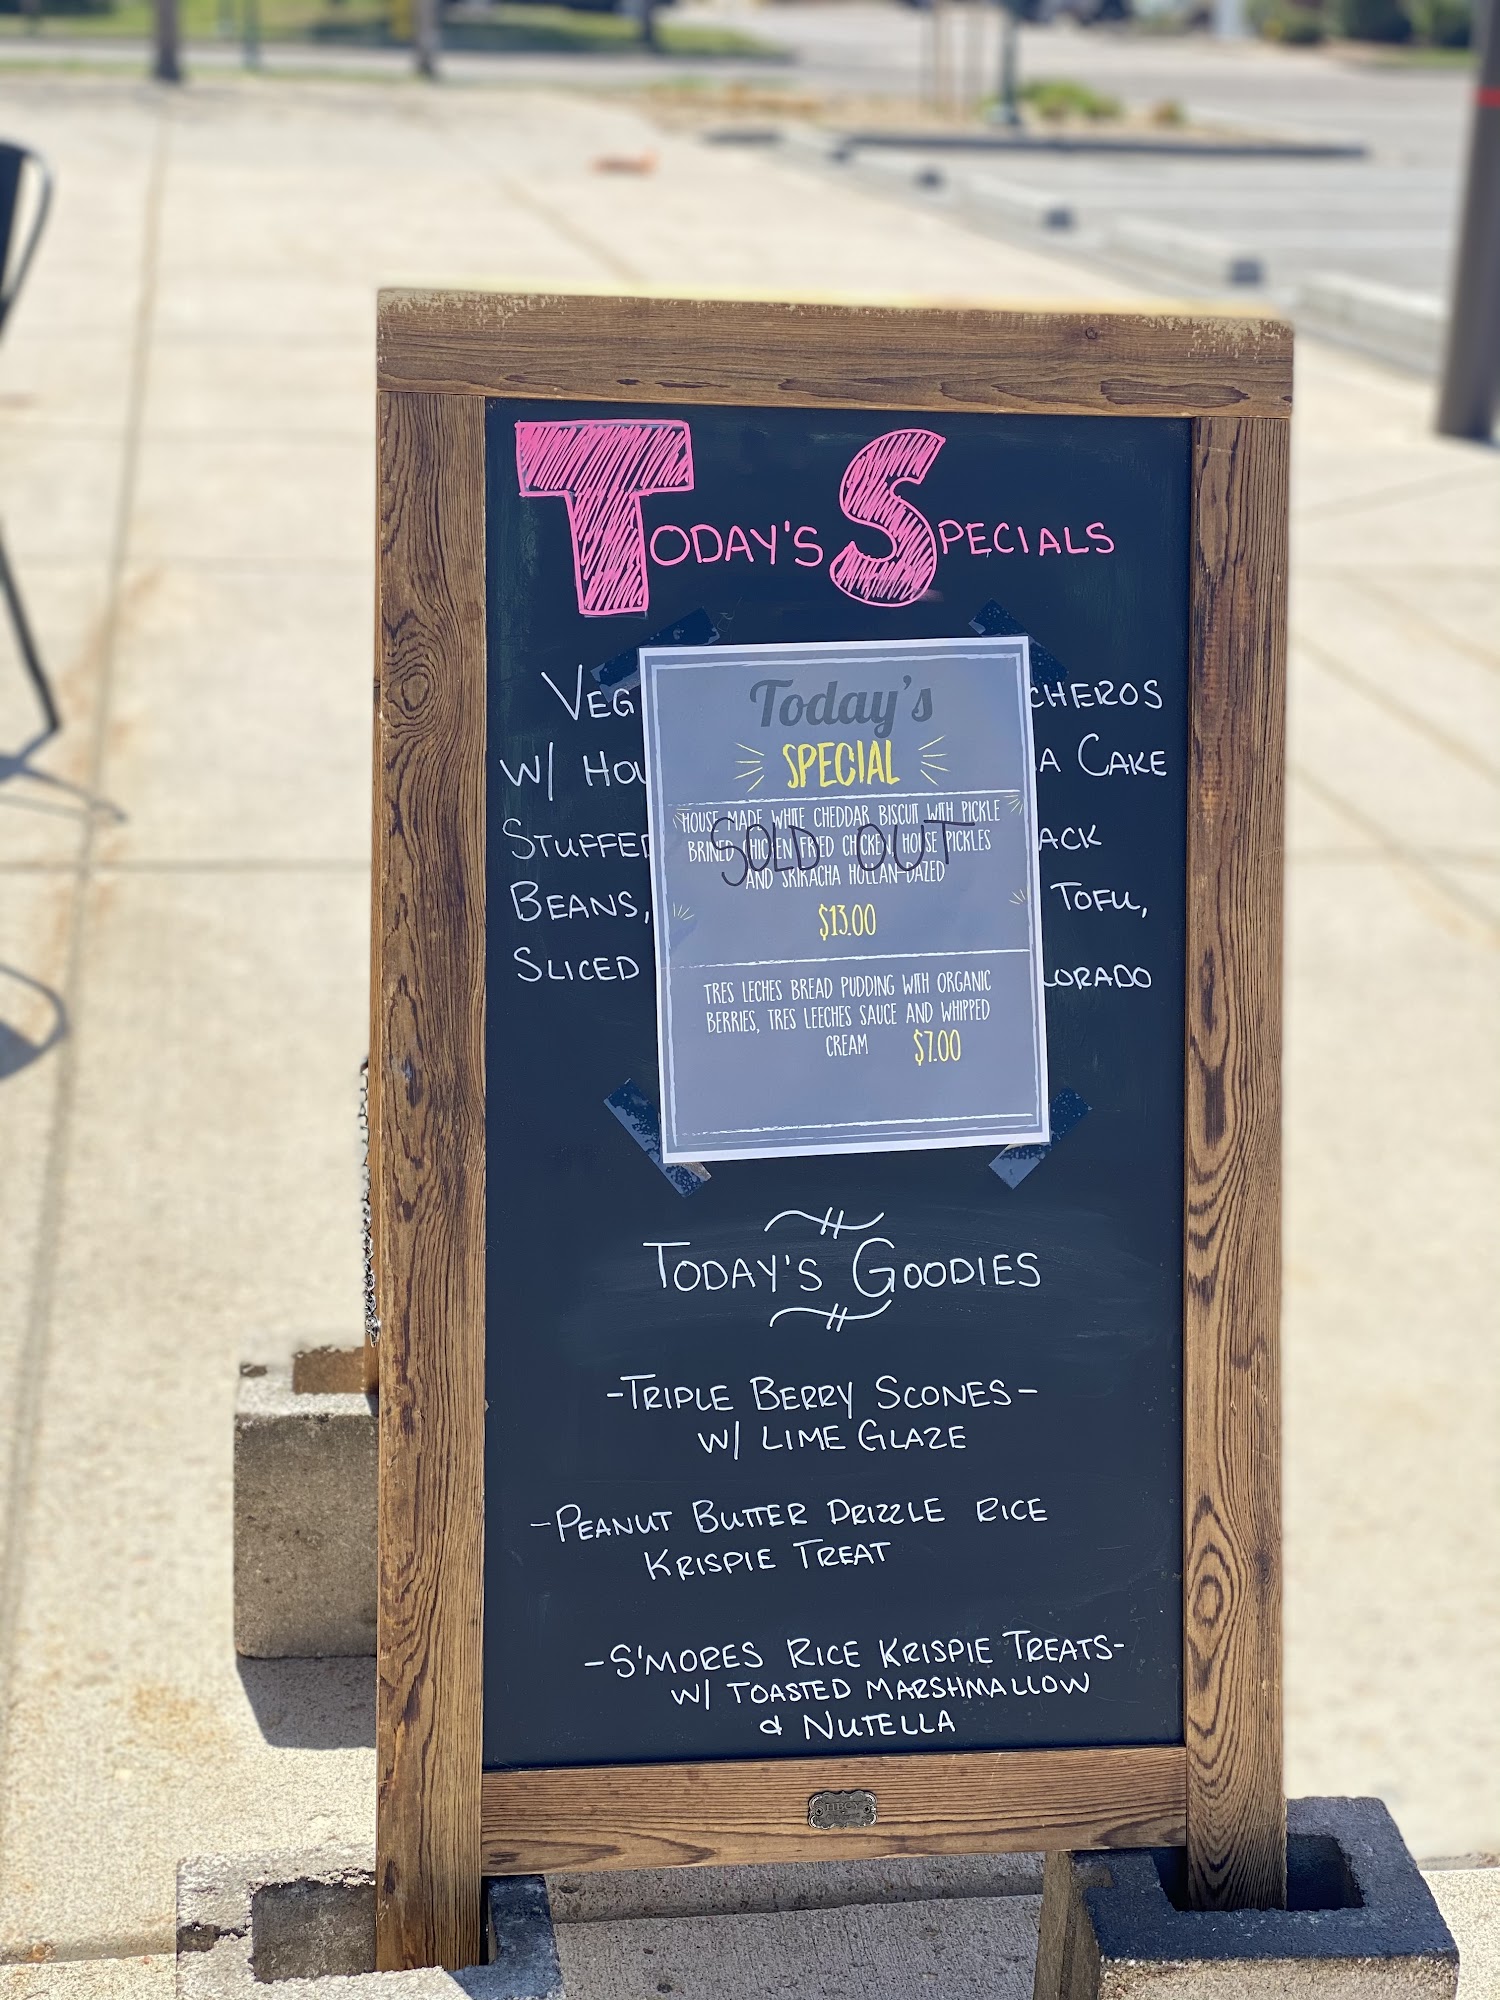 TODAY'S SPECIALS
VEG CHEROS
W/ HOU A CAKE
STUFFED ACK
BEANS, TOFU,
SLICED LORADO
Today's
SPECIAL
HOUSE MADE WHITE CHEDDAR BISCUIT WITH PICKLE
BRINED CHICKEN FRIED CHICKEN, HOUSE PICKLES
SOLD OUT
AND SRIRACHA HOLLAN-DAZED
$13.00
TRES LECHES BREAD PUDDING WITH ORGANIC
BERRIES, TRES LEECHES SAUCE AND WHIPPED
CREAM $7.00
TODAY'S GOODIES
-TRIPLE BERRY SCONES-
W/ LIME GLAZE
-PEANUT BUTTER DRIZZLE RICE
KRISPIE TREAT
-S'MORES RICE KRISPIE TREATS-
W/ TOASTED MARSHMALLOW
& NUTELLA